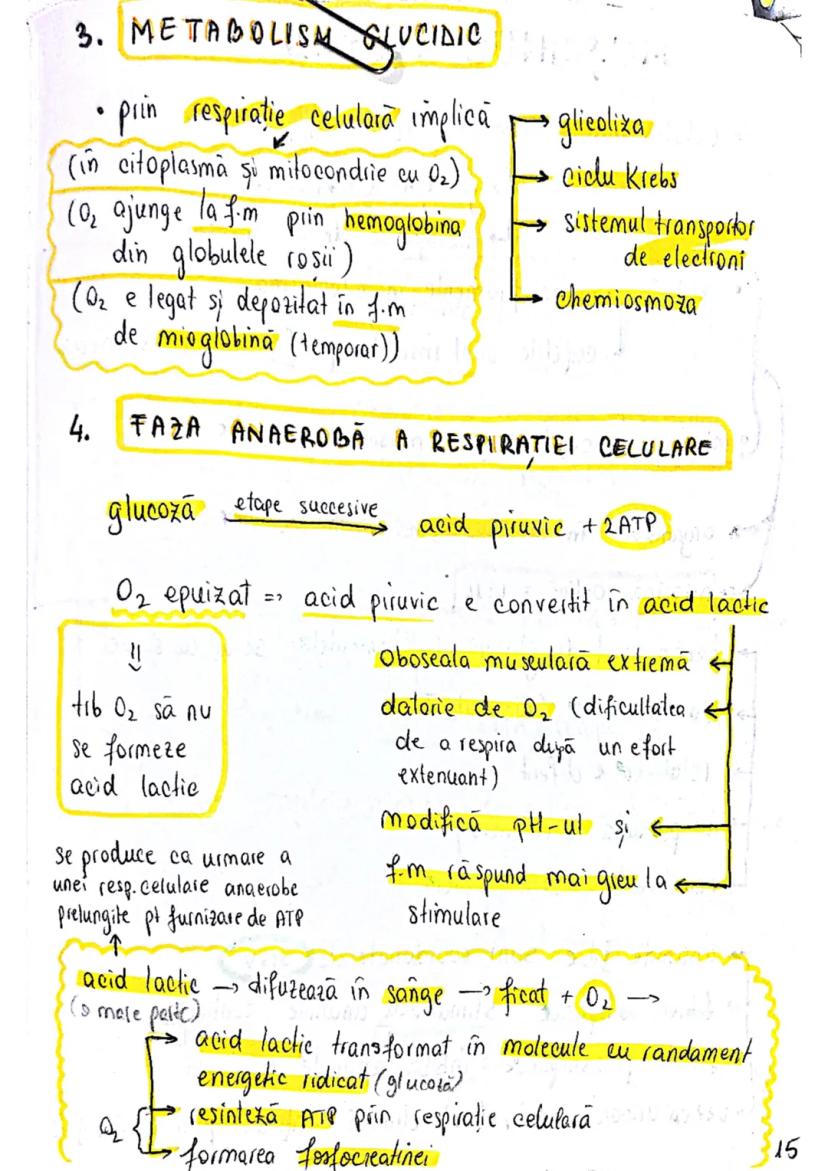 3. METABOLISM GLUCIDIC
• prin respirație celulară implică
→ glicoliza
(în citoplasmă și mitocondrie cu O₂)
→ ciclu Krebs
(O₂ ajunge la f.m prin hemoglobina
din globulele roșii)
→ sistemul transportor
de electroni
(O₂ e legat și depozitat în f.m
de mioglobină (temporar))
→ chemiosmoza
4. FAZA ANAEROBĂ A RESPIRAȚIEI CELULARE
glucoză etape succesive → acid piruvic + 2ATP
O₂ epuizat => acid piruvic e convertit în acid lactic
trb O₂ să nu
se formeze
acid lactic
oboseala musculară extremă
datorie de O₂ (dificultatea
de a respira după un efort
extenuant)
modifică pH-ul și
f.m răspund mai greu la
stimulare
se produce ca urmare a
unei resp. celulare anaerobe
prelungite pt furnizare de ATP
acid lactic → difuzează în sânge → ficat + O₂ →
(o mare parte)
→ acid lactic transformat în molecule cu randament
energetic ridicat (glucoză)
O₂ { → resinteză ATP prin respirație celulară
→ formarea fosfocreatinei
15